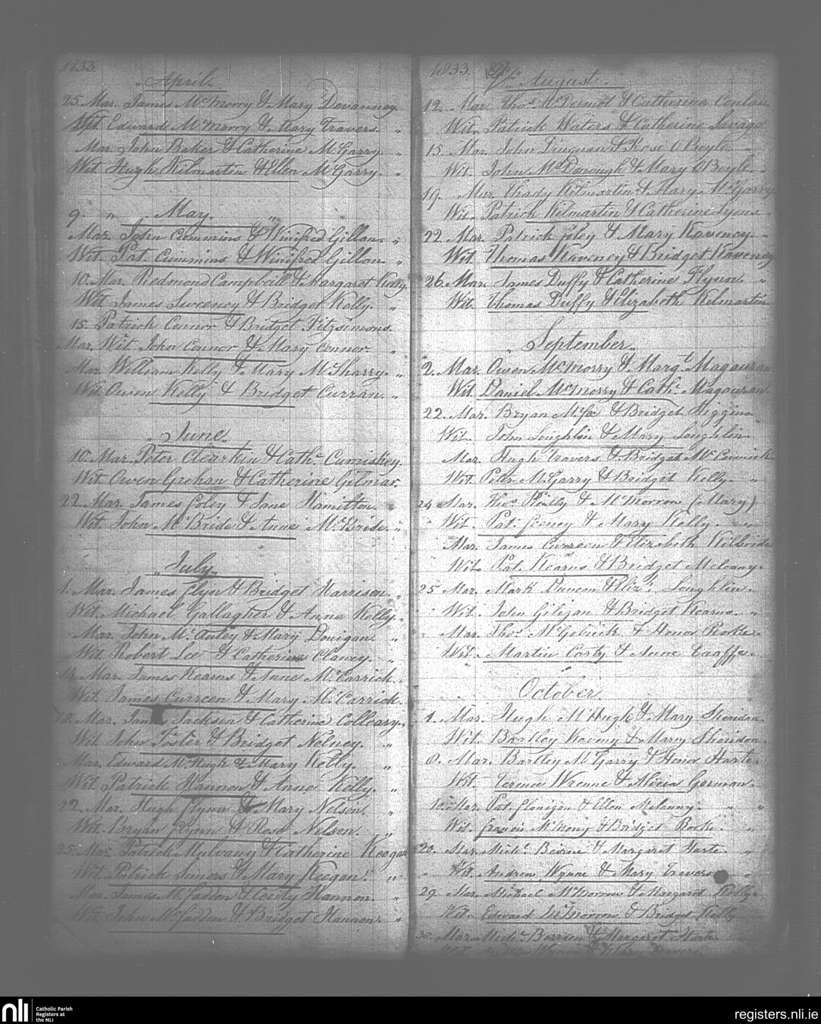 1833.
April.
25 Mar. James McMorry & Mary Devanney
Wit Edward McMorry & Mary Travers. "
Mar. John Baker & Catherine McGarry "
Wit Hugh Kilmartin & Ellen McGarry. "
9. " May. "
Mar. John Cummins & Winifred Gillan "
Wit Pat. Cummins & Winifred Gillon "
10. Mar. Redmond Campbell & Margaret Kelly
Wit James Sweeney & Bridget Kelly. "
15. Patrick Connor & Bridget Fitzsimons.
Mar. Wit. John Connor & Mary Connor. "
Mar. William Kelly & Mary McSharry "
Wit Owen Kelly & Bridget Curran. "
June.
10. Mar. Peter Clearkin & Cathe. Cumiskey
Wit Owen Grehan & Catherine Gilmar.
22. Mar. James Foley & Jane Hamilton. "
Wit John McBride & Anne McBride. "
July.
1. Mar. James Flyn & Bridget Harrison "
Wit. Michael Gallagher & Anne Kelly "
Mar. John McAuley & Mary Donigan "
Wit Robert Lee & Catherine Clancy. "
Mar. James Kearns & Anne McCarrick.
Wit James Curreen & Mary McCarrick.
Mar. Jackson & Catherine Colleary,
Wit John Foster & Bridget "
Mar. Edward McHugh & Mary Kelly. "
Wit Patrick Hannon & Anne Kelly. "
22. Mar. Hugh Flynn & Mary Nelson. "
Wit. Bryan Flynn & Rose Nelson. "
25. Mar. Patrick Mulvany & Catherine Keegan
Wit Patrick & Mary Keegan. "
Mar. James McFadden & Hannon. "
Wit John McFadden & Bridget Hannon. "
1833. August.
12. Mar. Thos. McDermot & Catherine Conlan
Wit. Patrick Waters & Catherine Savage
15. Mar. John & Rose O'Boyle. "
Wit. John McDonough & Mary O'Boyle "
19. Mar. Kilmartin & Mary McGarry
Wit. Patrick Kilmartin & Catherine Lyons
22. Mar. Patrick Foley & Mary Kaveney.
Wit. Thomas Kaveney & Bridget Kaveney
26. Mar. James Duffy & Catherine Flynn "
Wit Thomas Duffy & Elizabeth Kilmartin
" September.
2. Mar. Owen McMorry & Margt. Magauran
Wit. Daniel McMorry & Cathe. Magauran
22. Mar. Bryan McCoe & Bridget Higgins
Wit. John Loughlin & Mary Loughlin
Mar. Hugh Travers & Bridget McCormick
Wit. Peter McGarry & Bridget Kelly. "
24. Mar. Reilly & McMorrow (Mary)
" Wit. Pat. Feeney & Mary Kelly. "
Mar. James Curreen & Elizabeth Kilbride
Wit. Pat. Kearns & Bridget
25 Mar. Mark & Eliz. Loughlin
" Wit. John Gilgan & Bridget Kearns. "
" Mar. Thos. McGetrick & Honor Rorke "
" Wit. Martin Conty & Anne Taaffe. "
October.
1. Mar. Hugh McHugh & Mary Sheridan
Wit. Bartley & Mary Sheridan.
8. Mar. Bartley McGarry & Honor Harte.
Wit. Terence & Gorman.
Mar. Pat. Flanigan & Ellen "
Wit. Francis & Bridget Rorke. "
20. Mar. Michl. Beirne & Margaret Harte. "
" Wit. Andrew Wynne & Mary Travers
29. Mar. Michael McMorrow & Margaret Kelly
Wit. Edward McMorrow & Bridget Kelly
Mar. Michl. & Margaret Harte
nli
Catholic Parish
Registers at
the NLI
registers.nli.ie